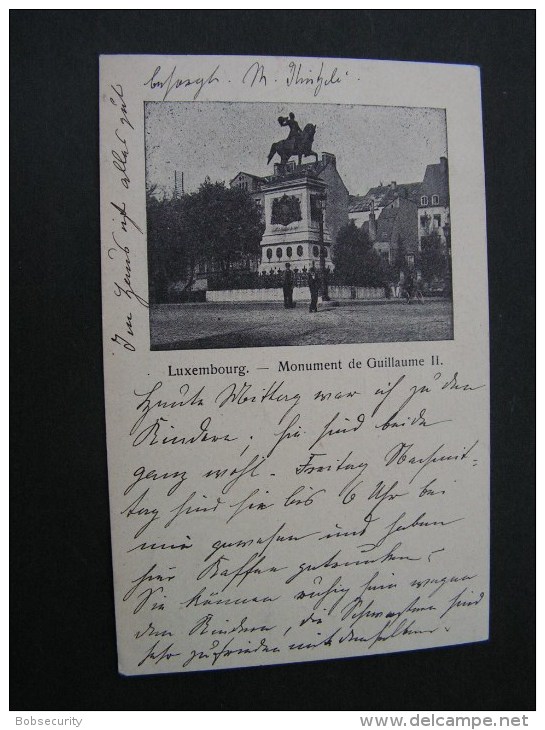 besorgt. M.
Im Haus ist alles gut
Luxembourg. — Monument de Guillaume II.
Heute Mittag war ich zu den
Kindern, sie sind beide
ganz wohl. Freitag Nachmit=
tag sind sie bis 6 Uhr bei
mir gewesen und haben
hier Kaffee getrunken.
Sie können ruhig sein wegen
den Kindern, die Schwestern sind
sehr zufrieden mit denselben.
Bobsecurity
delcampe.net